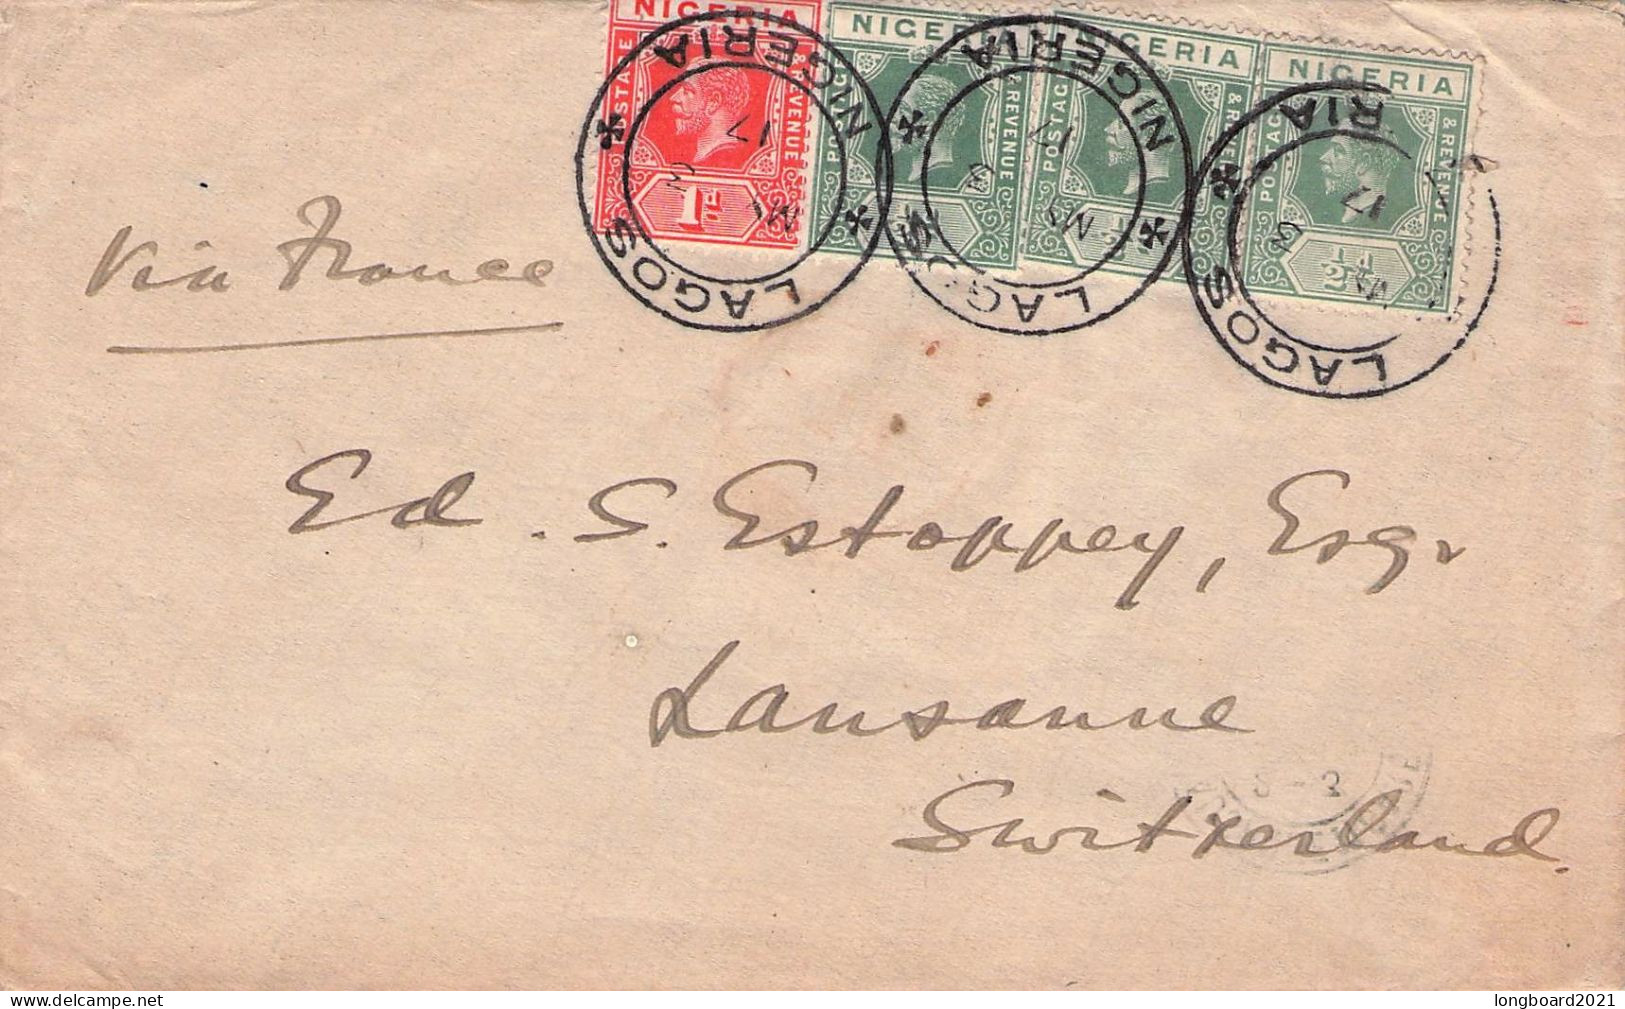 NIGERIA NIGERIA NIGERIA NIGERIA
POSTAGE & REVENUE
1D
POSTAGE & REVENUE
½
POSTAGE
½
POSTAGE & REVENUE
½D
LAGOS NIGERIA
17
LAGOS NIGERIA
17
LAGOS RIA
17
Via France
Ed. S. Estoppey, Esqr
Lausanne
Switzerland.
delcampe.net
longboard2021